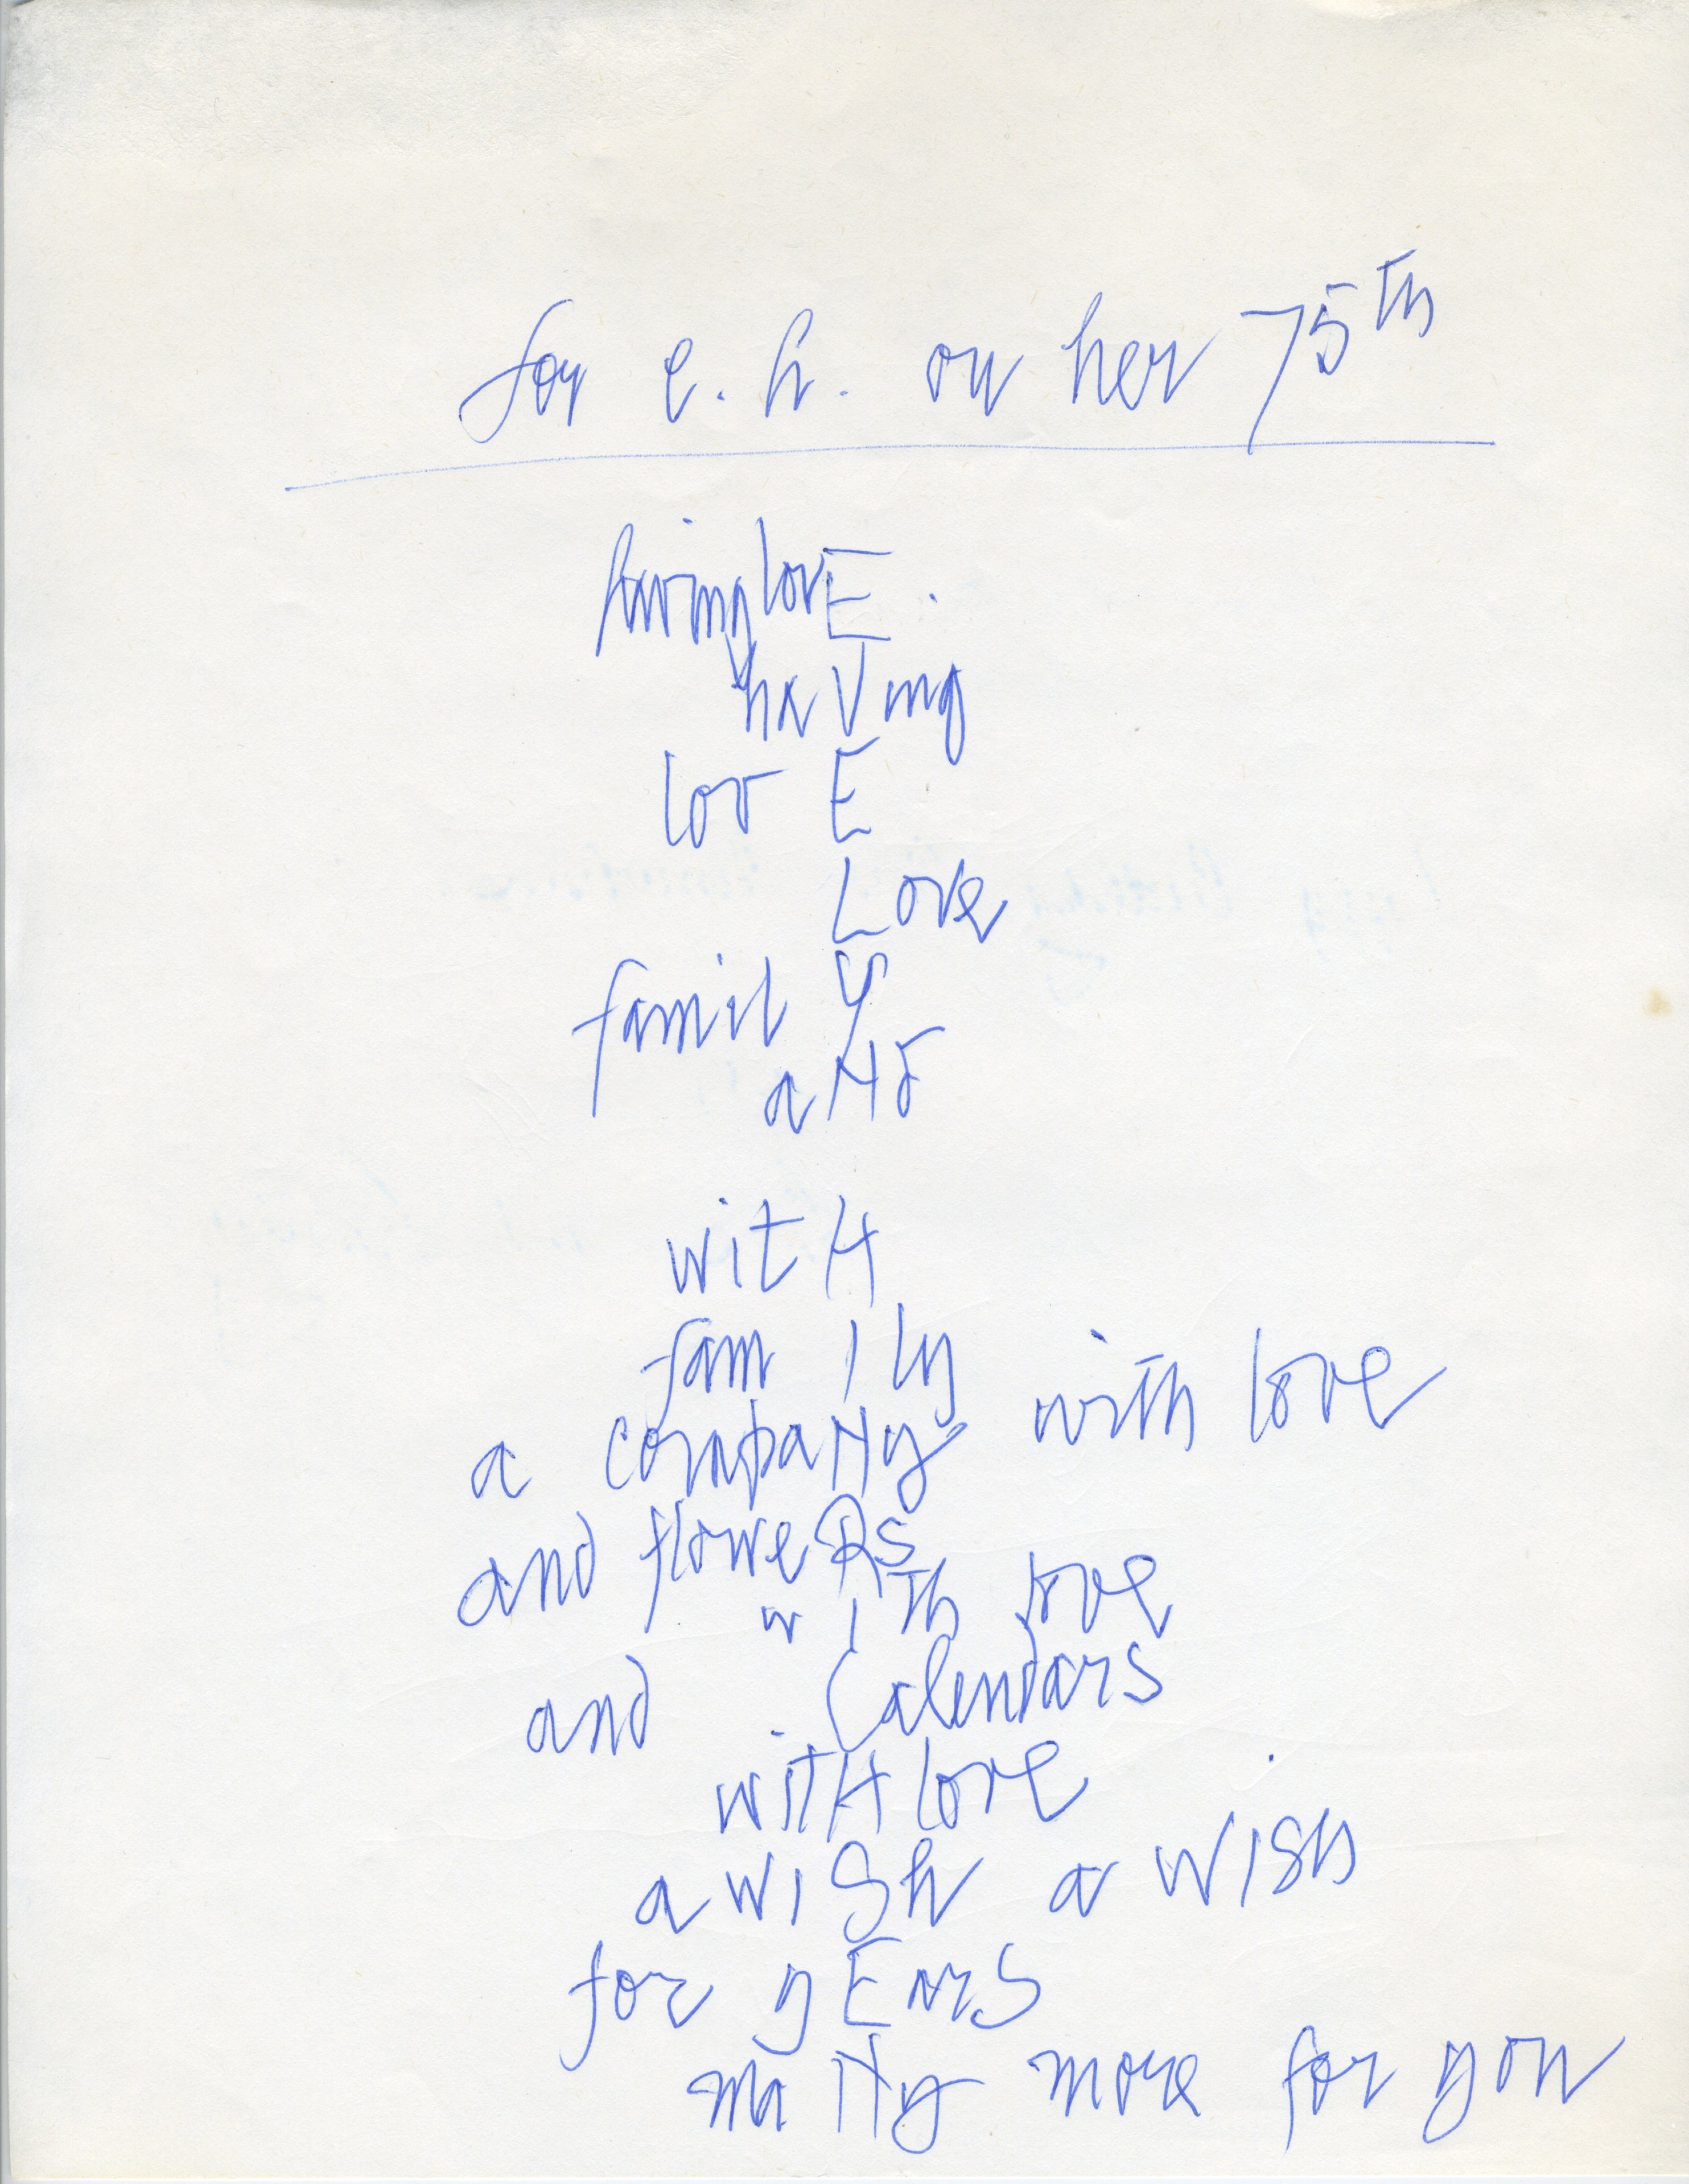 for e. h. on her 75th
having lovE.
haVing
lov E
Love
famil Y
aNd
witH
fam Ily
a compaNy with love
and floweRs
w I th love
and Calendars
witH love
a wiSh a wish
for yEars
ma Ny more for you